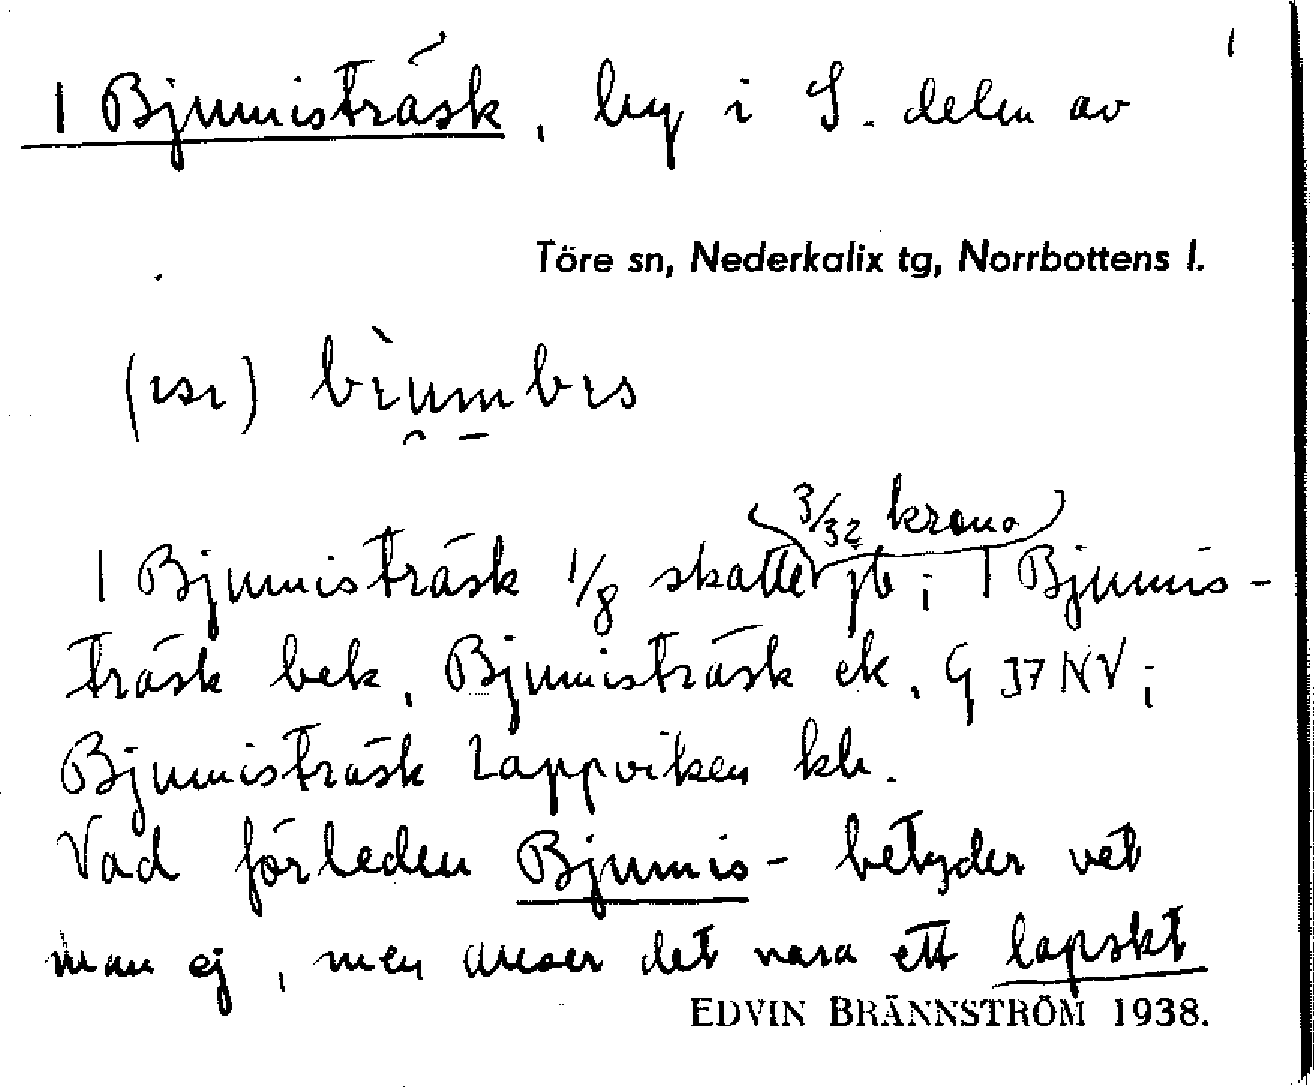 1
1 Bjumisträsk, by i S. delen av
Töre sn, Nederkalix tg, Norrbottens l.
1 Bjumisträsk 1/8 skatte (3/32 krono) jb; 1 Bjumis-
träsk bek. Bjumisträsk ek. G 37 NV;
Bjumisträsk Lappviken kh.
Vad förleden Bjumis- betyder vet
man ej, men anser det vara ett lapskt
EDVIN BRÄNNSTRÖM 1938.